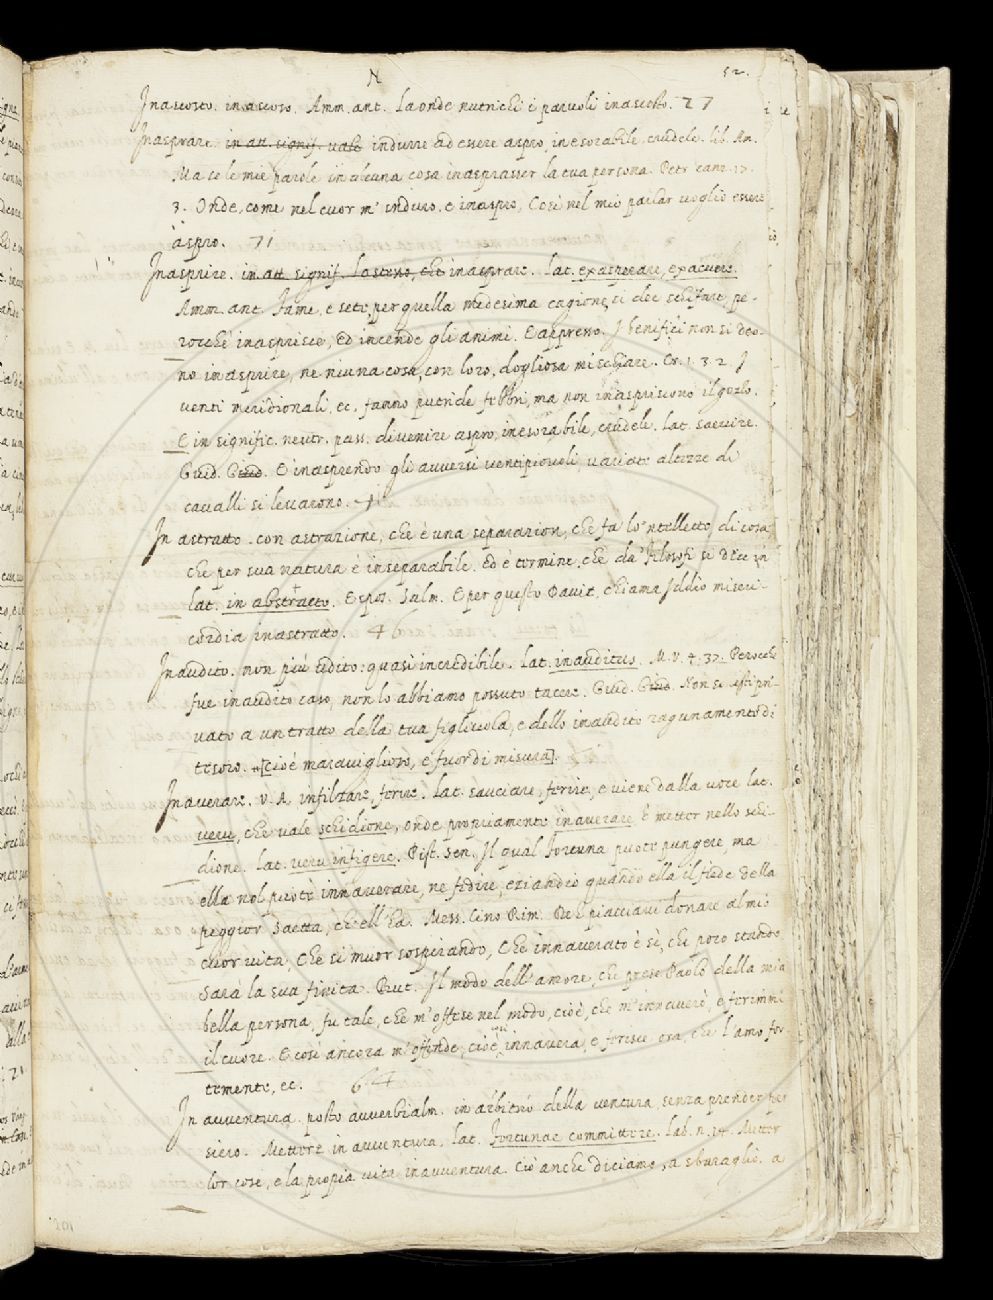 N
52.
Inascosto. in ascoso. Amm. ant. La onde nutrichi i parvoli inascosto. 27
Inasprare. in att. signif. vale indurre ad essere aspro, inesorabile, crudele. lib. Am.
Ma se le mie parole in alcuna cosa inasprasser la tua persona. Petr canz. 17.
3. Onde, come nel cuor m'induro, e inaspro, Così nel mio parlar voglio essere
aspro. 71
Inasprire. in att. signif. lo stesso, che inasprare. lat. exasperare, exacuere.
Amm. ant. Fame, e sete, per quella medesima cagione, si dee schifare, pe-
rocchè inasprisce, ed incende gli animi. E appresso. I benefici non si deo-
no inasprire, ne niuna cosa, con loro, dogliosa mischiare. Cr. 1. 3. 2. I
venti meridionali, ec. fanno putride febbri, ma non inaspriscono il gozzo.
E in signific. neutr. pass. divenire aspro, inesorabile, crudele. lat. saevire.
Guid. Guid. E inasprendo gli avversi venti piovoli variate altezze di
cavalli si levarono. 41
In astratto. con astrazione, che è una separazion, che fa lo 'ntelletto, di cosa
che per sua natura è inseparabile. Ed è termine, che da' Filosofi si dice in
lat. in abstracto. Espos. Salm. E per questo Davit, chiama Iddio miseri-
cordia inastratto. 46
Inaudito. non più udito: quasi incredibile. lat. inauditus. M. V. 4. 37. Perocchè
fue inaudito caso, non lo abbiamo possuto tacere. Guid. Guid. Non se' esti pri-
vato a un tratto della tua figliuola, e dello inaudito ragunamento di
tesoro. [cioè maraviglioso, e fuor di misura].
Inaverare. V. A. infilzare, ferire. lat. sauciare, ferire, e viene dalla voce lat.
veru, che vale schidione, onde propriamente inaverare è metter nello schi-
dione. lat. veru infigere. Pist. Sen. Il qual fortuna puote pungere, ma
ella nol puote innaverare, ne fedire, eziandio quando ella il fiede della
peggior saetta, ch'ell'ha. Mess. Cino Rim. Deh piacciavi donare al mi'
cuor vita, Che si muor sospirando, Che innaverato è sì, che poco stando
Sarà la sua finita. But. Il modo dell'amore, che prese Paolo della mia
bella persona, fu tale, che m'offese nel modo, cioè, che m'innaverò, e ferimmi
il cuore. E così ancora m'offende, cioè, innavera, e ferisce ora, che l'amo, for-
temente, ec. 64
In avventura. posto avverbialm. in arbitrio della ventura, senza prender pen-
siero. Mettere in avventura, lat. fortunae committere. lab. n. 14. Metter
lor cose, e la propia vita inavventura. Ciò anche diciamo, a sbaraglio. a